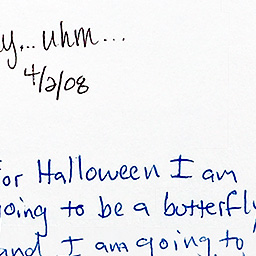 y... uhm...
4/2/08
or Halloween I am
going to be a butterfly
and I am going to